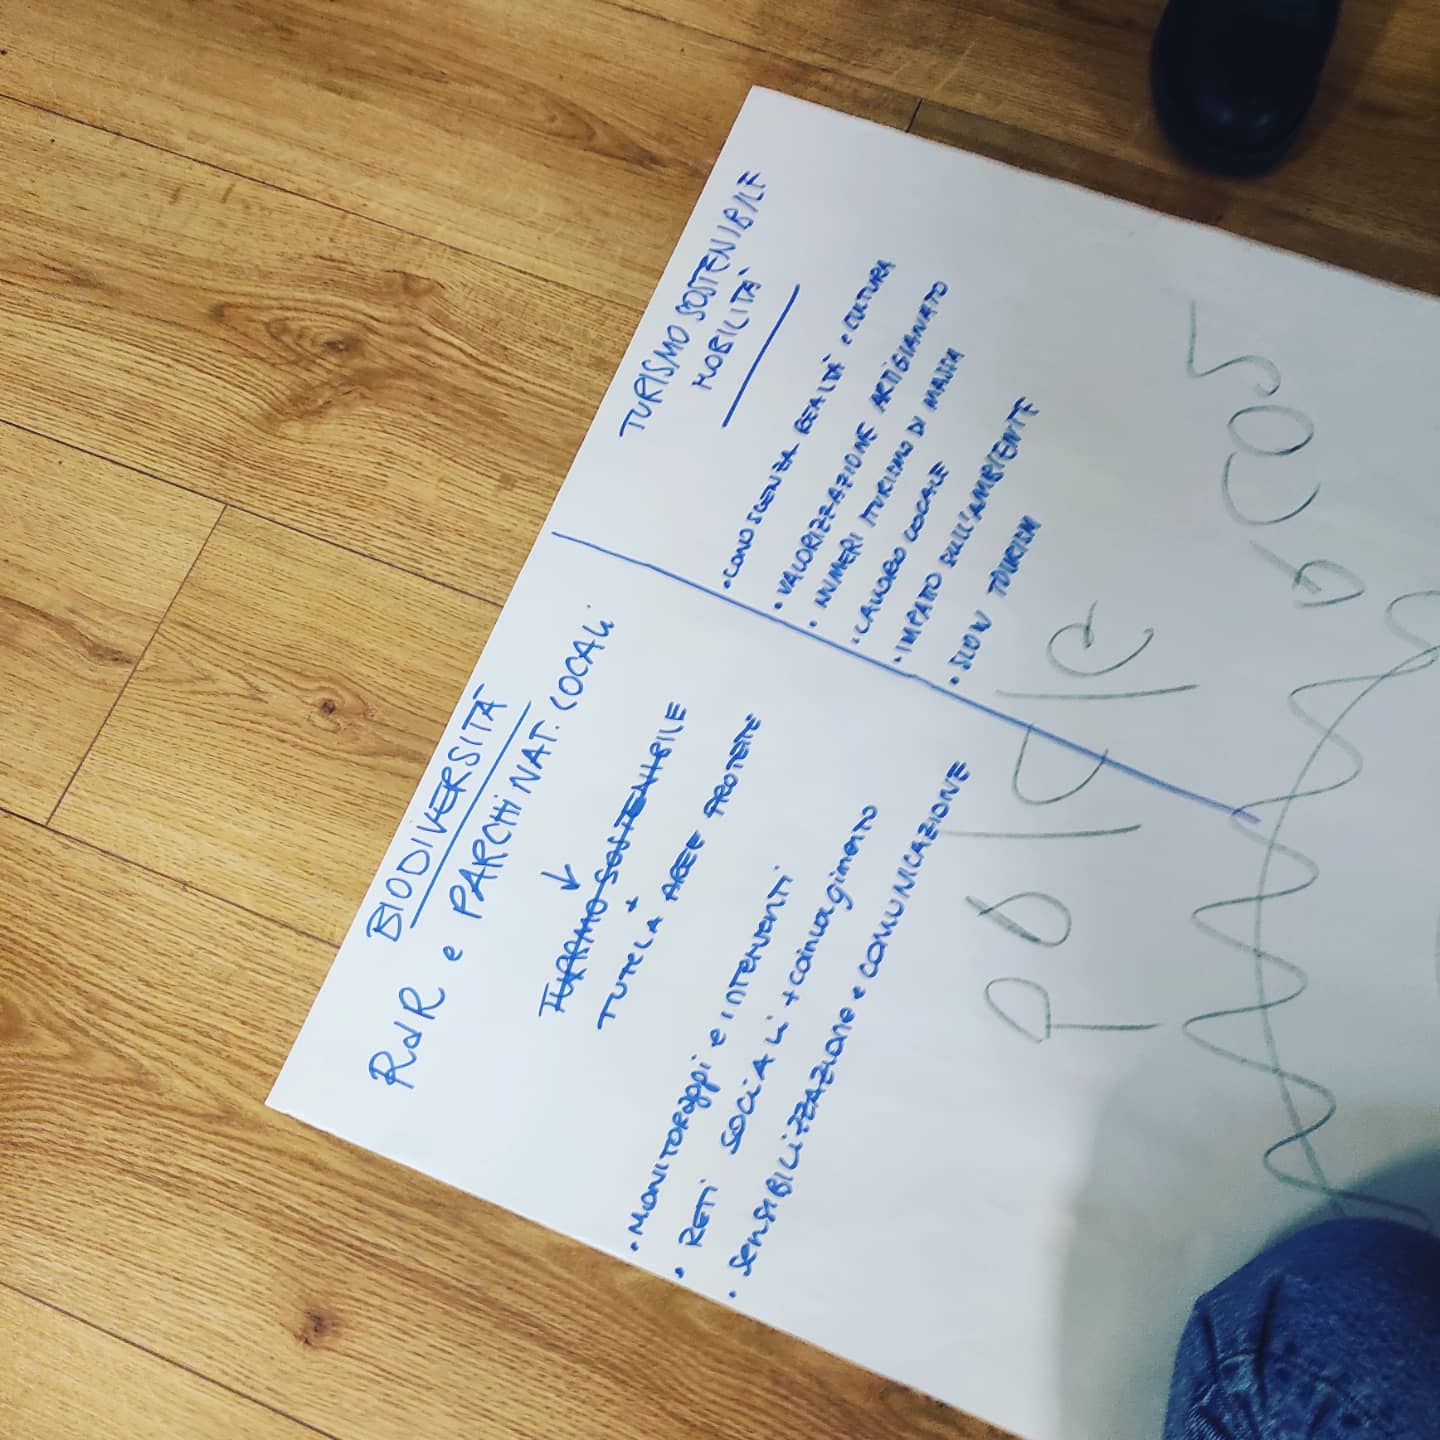 BIODIVERSITÀ
RdR e PARCHI NAT. LOCALI
↓
TURISMO SOSTENIBILE
+
TUTELA AREE PROTETTE
• MONITORAGGI e INTERVENTI
• RETI SOCIALI + COINVOGIMENTO
• SENSIBILIZZAZIONE e COMUNICAZIONE
TURISMO SOSTENIBILE
MOBILITÀ
• CONOSCENZA REALTÀ e CULTURA
• VALORIZZAZIONE ARTIGIANATO
• NUMERI TURISMO DI MASSA
• LAVORO LOCALE
• IMPATTO SULL'AMBIENTE
• SLOW TOURISM